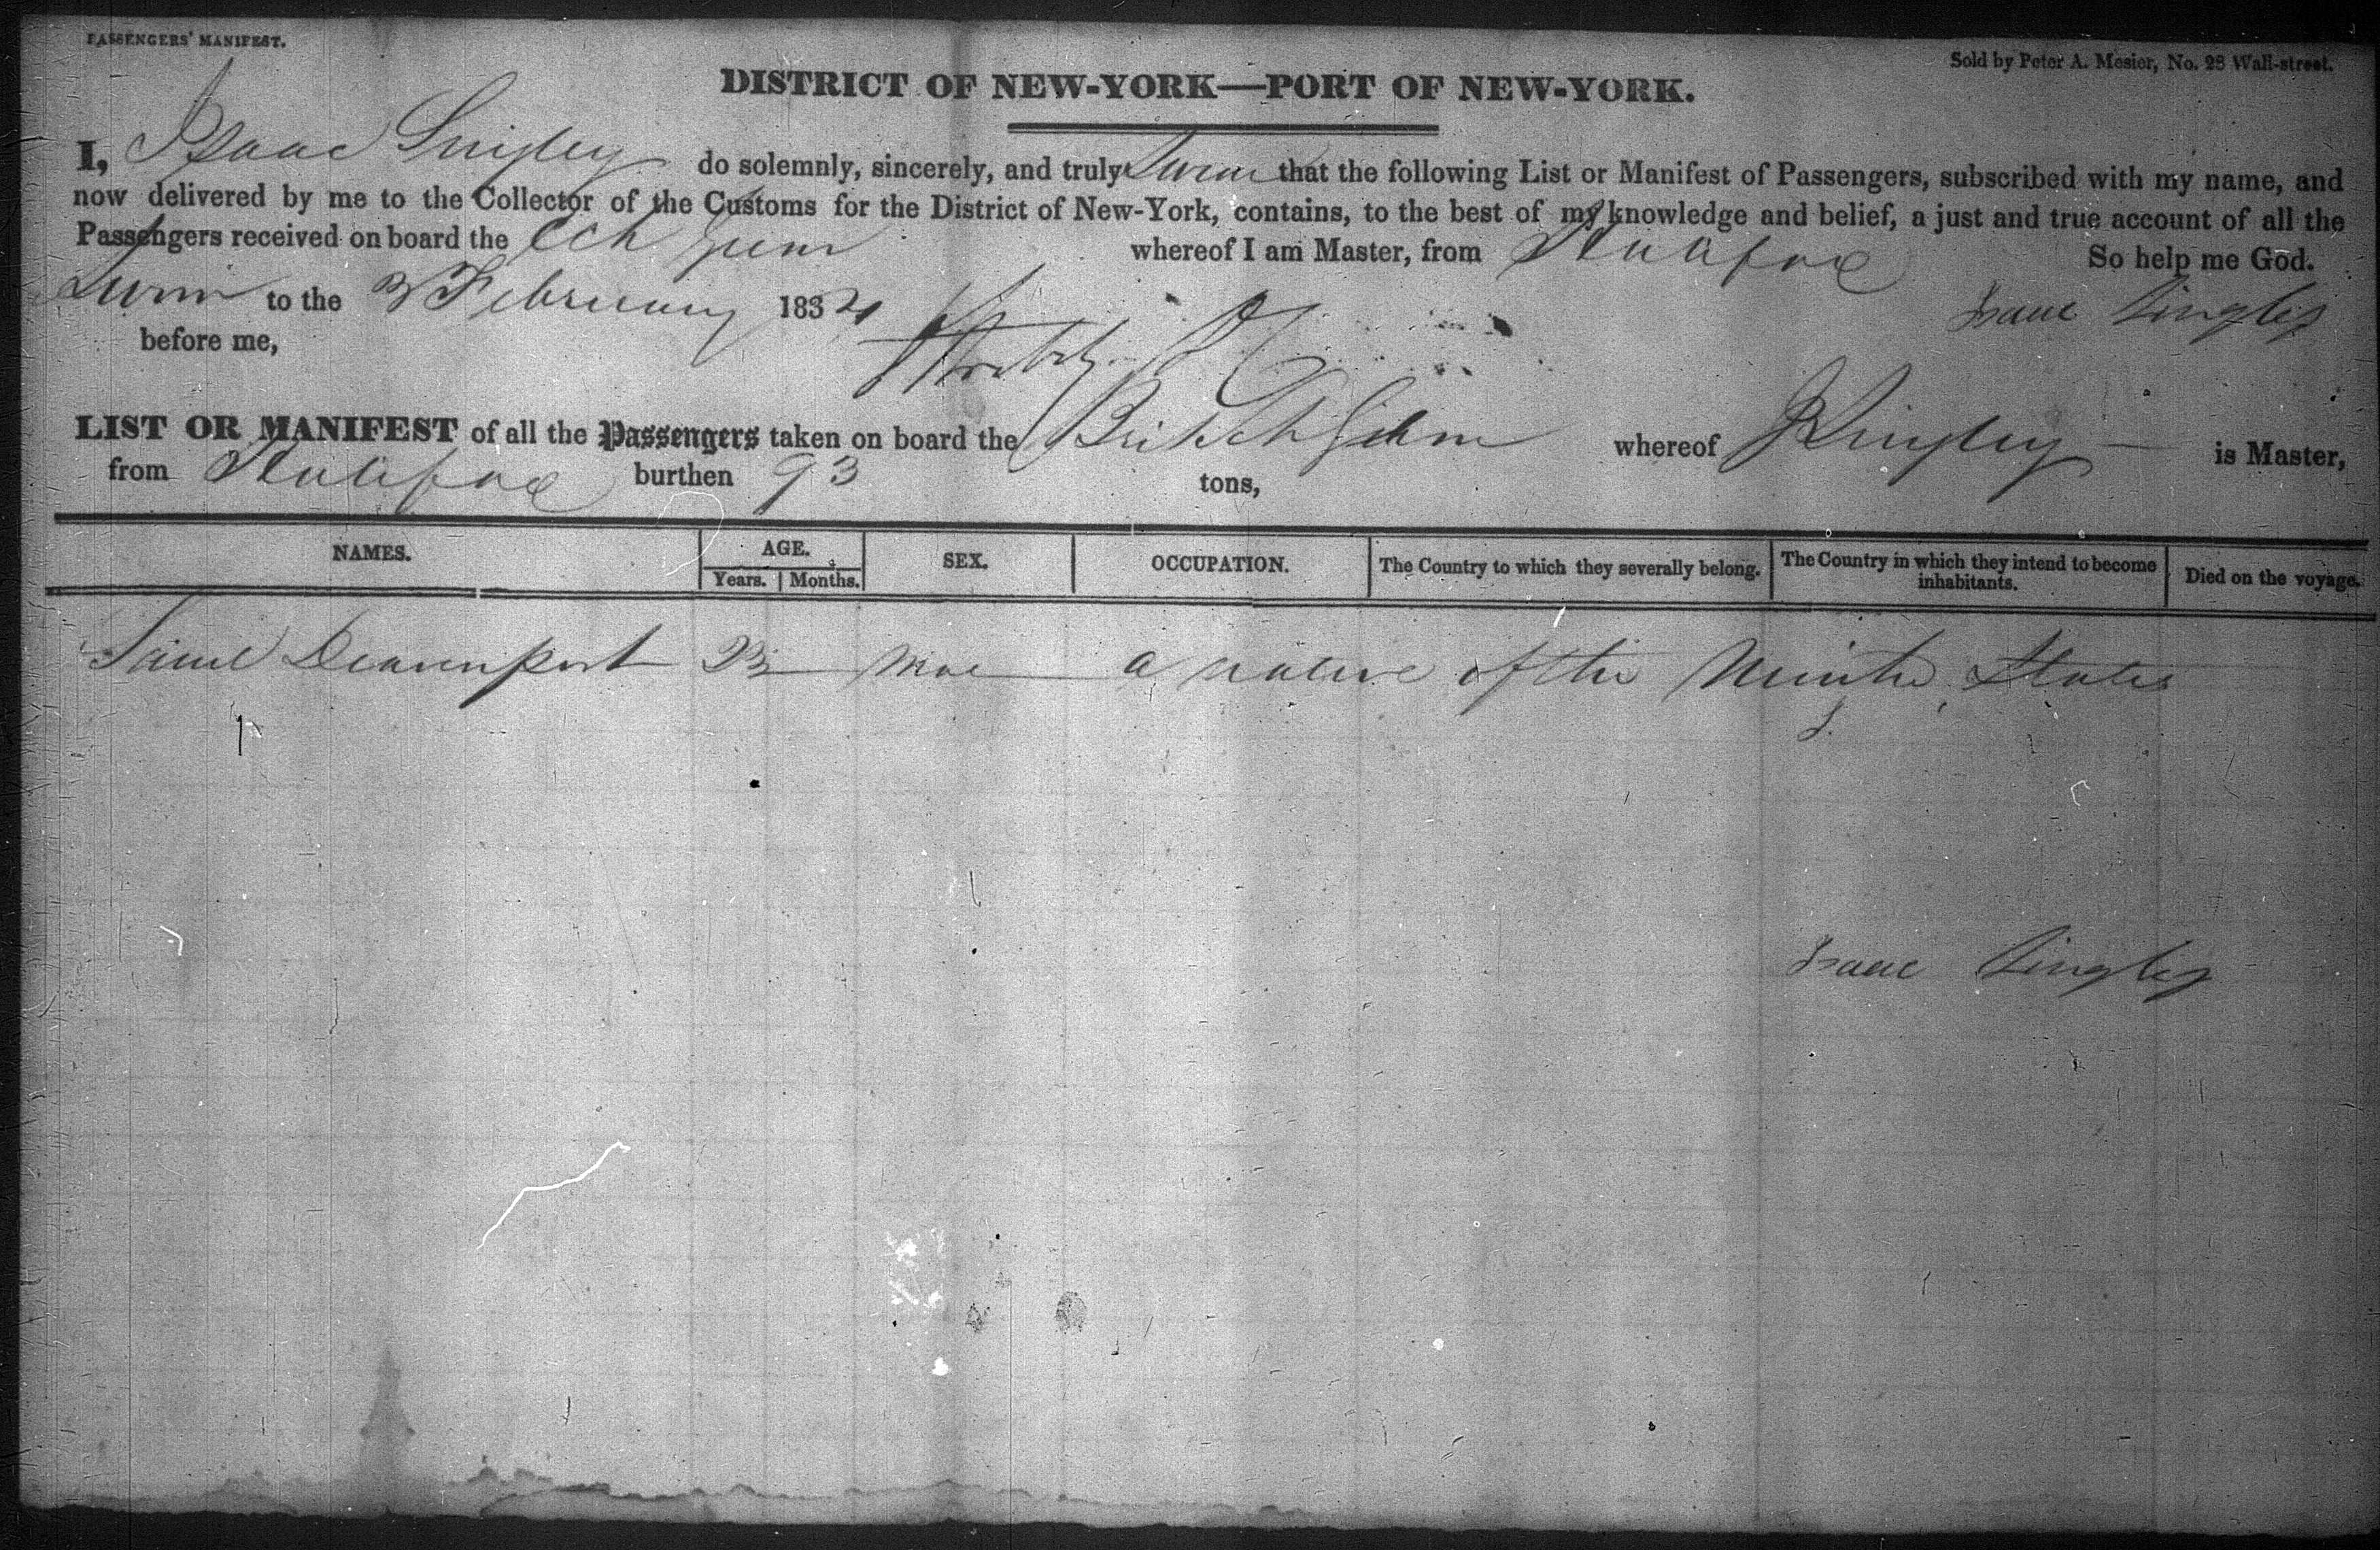 PASSENGERS' MANIFEST.
Sold by Peter A. Mesier, No. 28 Wall-street.
DISTRICT OF NEW-YORK—PORT OF NEW-YORK.
I, Isaac Lingley do solemnly, sincerely, and truly Swear that the following List or Manifest of Passengers, subscribed with my name, and
now delivered by me to the Collector of the Customs for the District of New-York, contains, to the best of my knowledge and belief, a just and true account of all the
Passengers received on board the Sch whereof I am Master, from Halifax So help me God.
Sworn to the 3 February 183 Isaac Lingley
before me,
LIST OR MANIFEST of all the Passengers taken on board the Brit Sch whereof Lingley is Master,
from Halifax burthen 93 tons,
NAMES. AGE. SEX. OCCUPATION. The Country to which they severally belong. The Country in which they intend to become inhabitants. Died on the voyage.
Years. Months.
Davenport a native of the States
Isaac Lingley